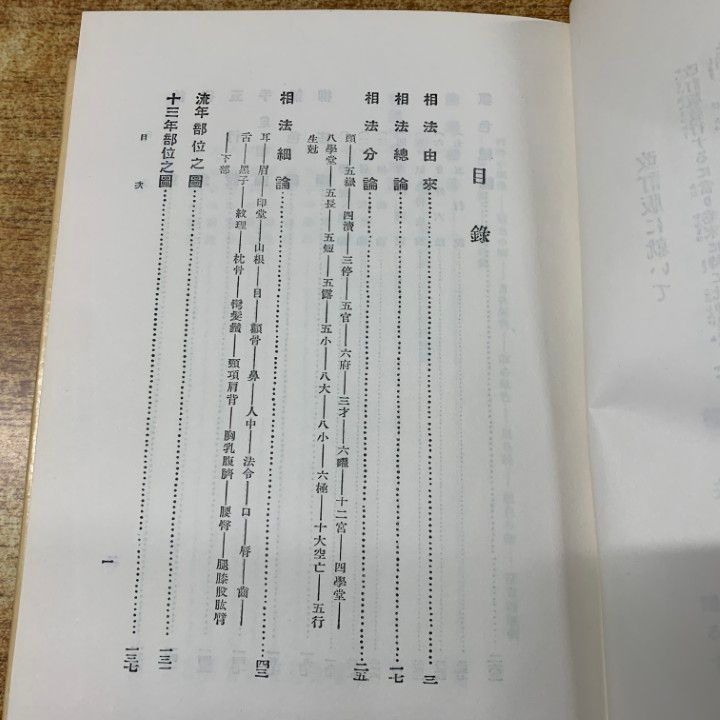 目錄
相法由來……三
相法總論……一七
相法分論……二五
頭――五嶽――四瀆――三停――五官――六府――三才――六曜――十二宮――四學堂
八學堂――五長――五短――五露――五小――八大――八小――六極――十大空亡――五行
生尅
相法細論……四三
耳――眉――印堂――山根――目――顴骨――鼻――人中――法令――口――脣――齒
舌――黑子――紋理――枕骨――鬚髮鬢――頸項肩背――胸乳腹臍――腰臀――腿膝股肱臂
――下部
流年部位之圖……一三一
十三年部位之圖……一三七
目次
一
改訂版に就いて